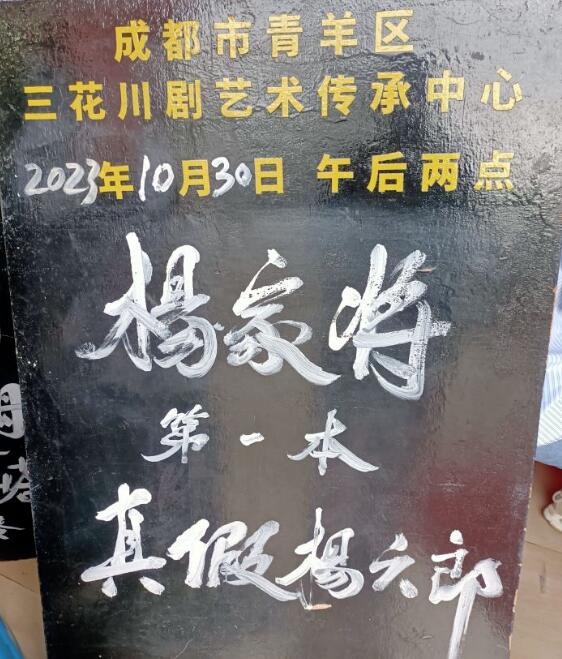 成都市青羊区
三花川剧艺术传承中心
2023年10月30日 午后两点
楊家将
第一本
真假楊六郎